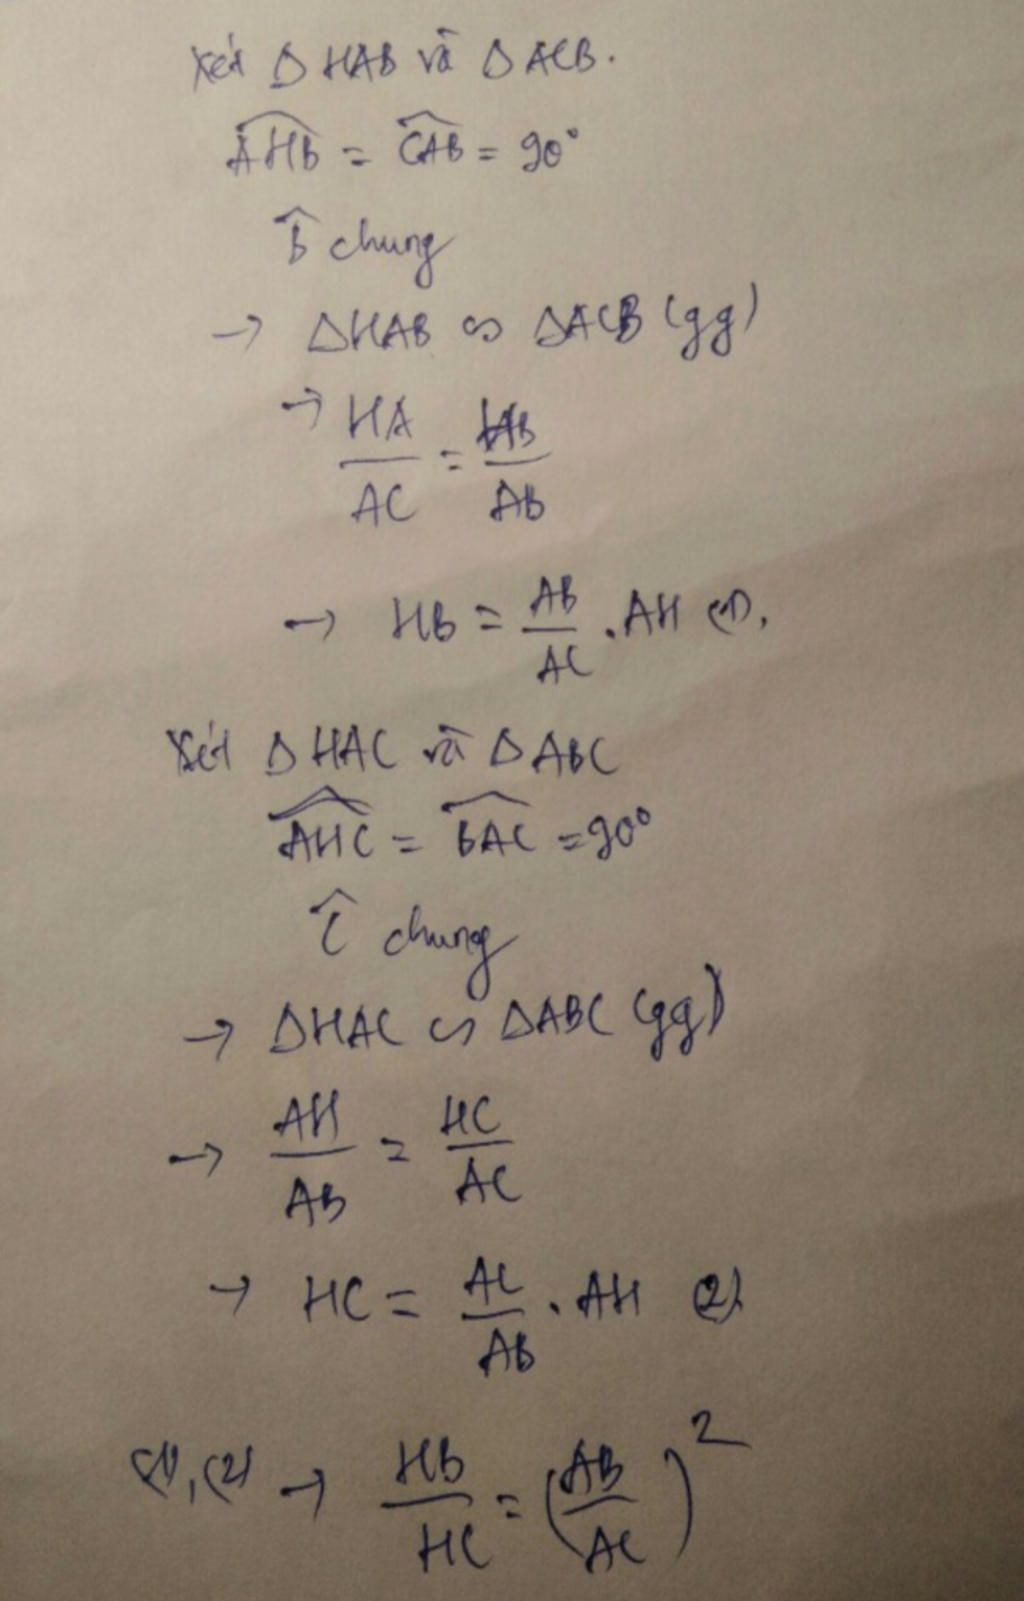 Xét Δ HAB và Δ ACB.
$\widehat{AHB} = \widehat{CAB} = 90°$
$\widehat{B}$ chung
→ ΔHAB ∽ ΔACB (gg)
→ $\frac{HA}{AC} = \frac{HB}{AB}$
→ $HB = \frac{AB}{AC} . AH$ (1),
Xét Δ HAC và Δ ABC
$\widehat{AHC} = \widehat{BAC} = 90°$
$\widehat{C}$ chung
→ ΔHAC ∽ ΔABC (gg)
→ $\frac{AH}{AB} = \frac{HC}{AC}$
→ $HC = \frac{AC}{AB} . AH$ (2)
(1), (2) → $\frac{HB}{HC} = \left(\frac{AB}{AC}\right)^2$